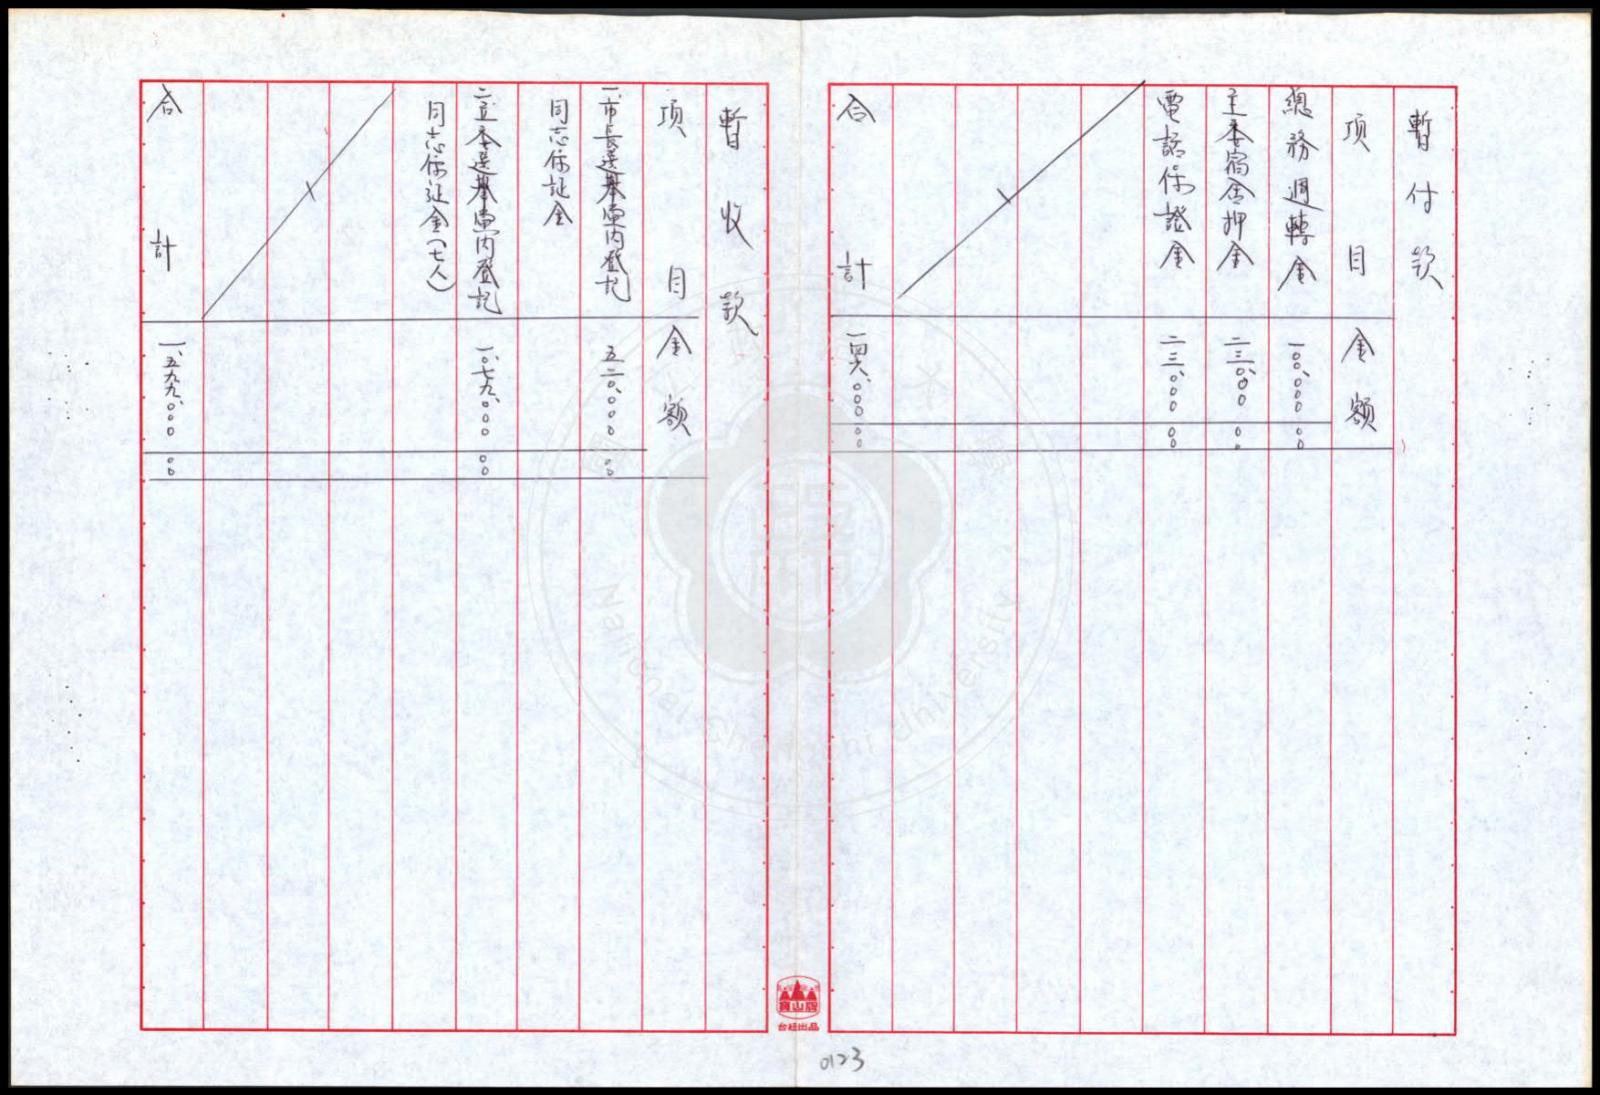 暫付款
項目 金額
總務週轉金 一〇〇、〇〇〇 〇〇
主委宿舍押金 二三、〇〇〇 〇〇
電話保證金 二三、〇〇〇 〇〇
合計 一四六、〇〇〇 〇〇
暫收款
項目 金額
一、市長選舉黨內登記 五二〇、〇〇〇 〇〇
同志保証金
二、立委選舉黨內登記 一、〇七九、〇〇〇 〇〇
同志保証金(七人)
合計 一、五九九、〇〇〇 〇〇
寶山牌
台經出品
0123
National Chengchi University